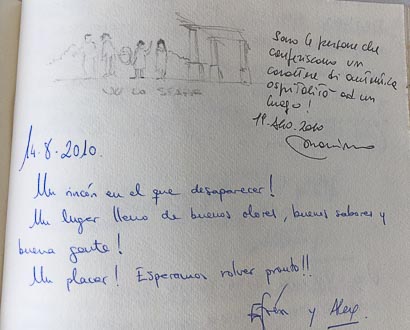 Sono le persone che
conferiscono un
carattere di autentica
ospitalità ad un
luogo!
19. Ago. 2010
14.8.2010.
Un rincón en el que desaparecer!
Un lugar lleno de buenos olores, buenos sabores y
buena gente!
Un placer! Esperamos volver pronto!!
Efrén y Alex.